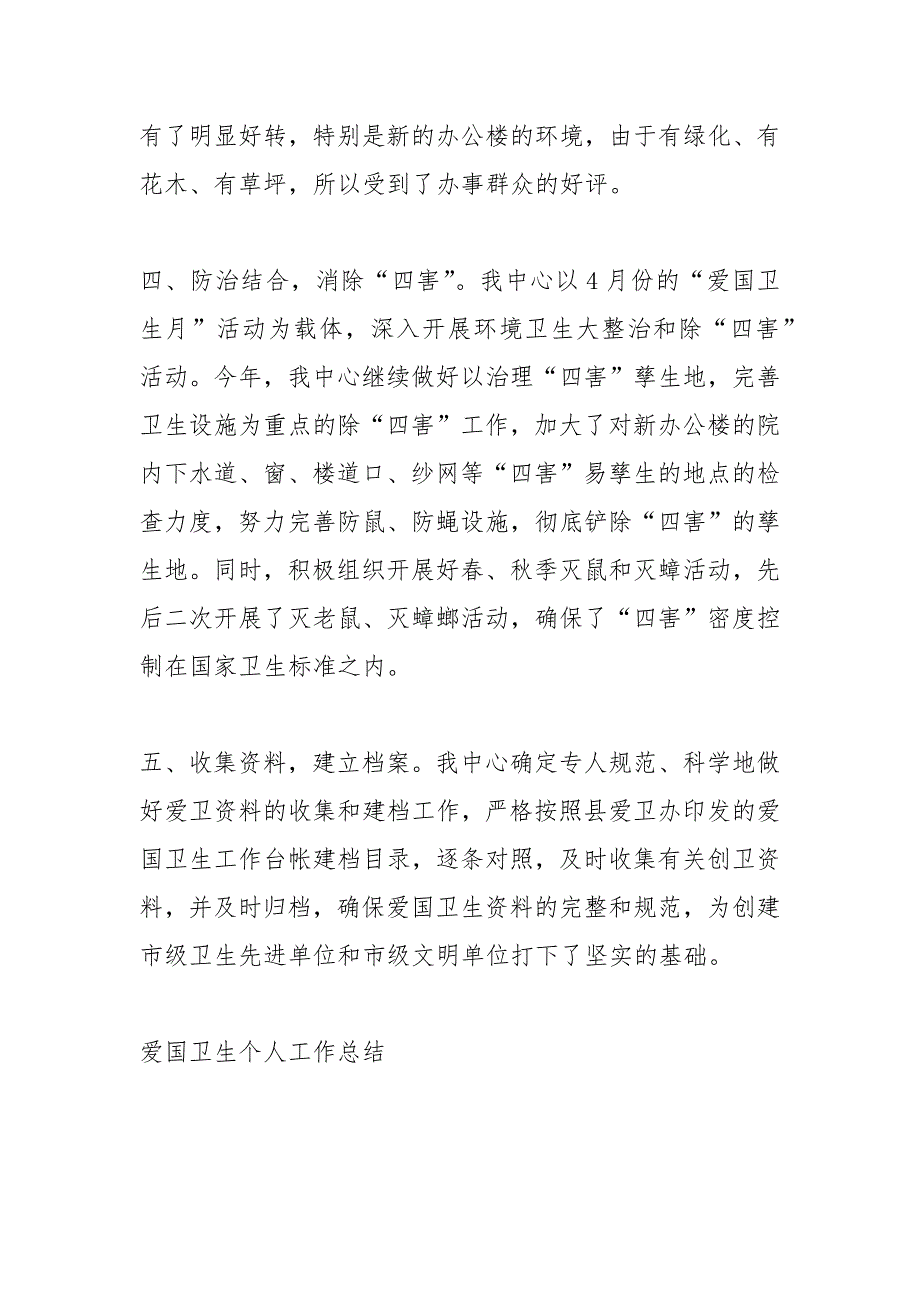 有了明显好转，特别是新的办公楼的环境，由于有绿化、有
花木、有草坪，所以受到了办事群众的好评。
四、防治结合，消除“四害”。我中心以 4 月份的“爱国卫
生月”活动为载体，深入开展环境卫生大整治和除“四害”
活动。今年，我中心继续做好以治理“四害”孳生地，完善
卫生设施为重点的除“四害”工作，加大了对新办公楼的院
内下水道、窗、楼道口、纱网等“四害”易孳生的地点的检
查力度，努力完善防鼠、防蝇设施，彻底铲除“四害”的孳
生地。同时，积极组织开展好春、秋季灭鼠和灭蟑活动，先
后二次开展了灭老鼠、灭蟑螂活动，确保了“四害”密度控
制在国家卫生标准之内。
五、收集资料，建立档案。我中心确定专人规范、科学地做
好爱卫资料的收集和建档工作，严格按照县爱卫办印发的爱
国卫生工作台帐建档目录，逐条对照，及时收集有关创卫资
料，并及时归档，确保爱国卫生资料的完整和规范，为创建
市级卫生先进单位和市级文明单位打下了坚实的基础。
爱国卫生个人工作总结